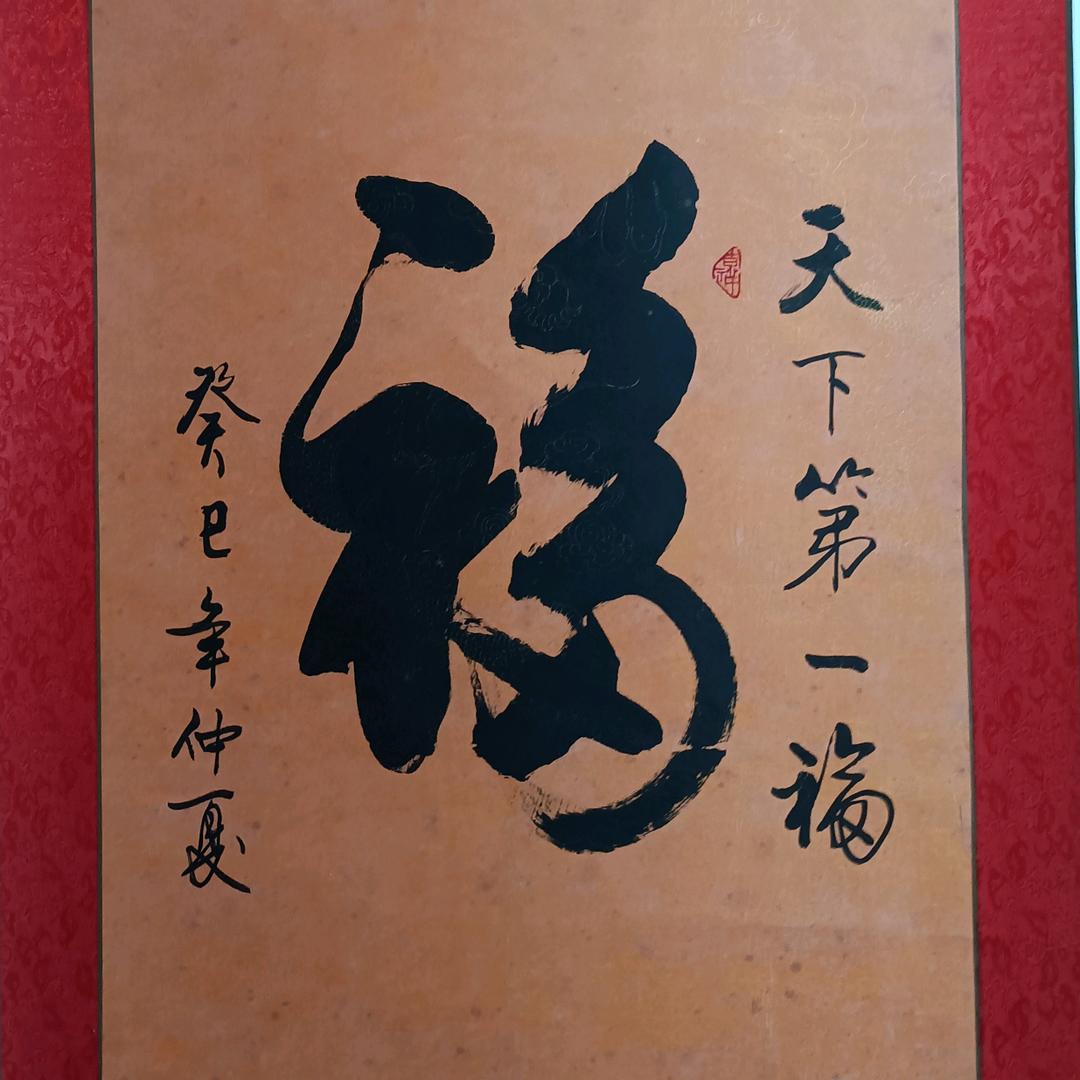 天下第一福
福
癸巳年仲夏